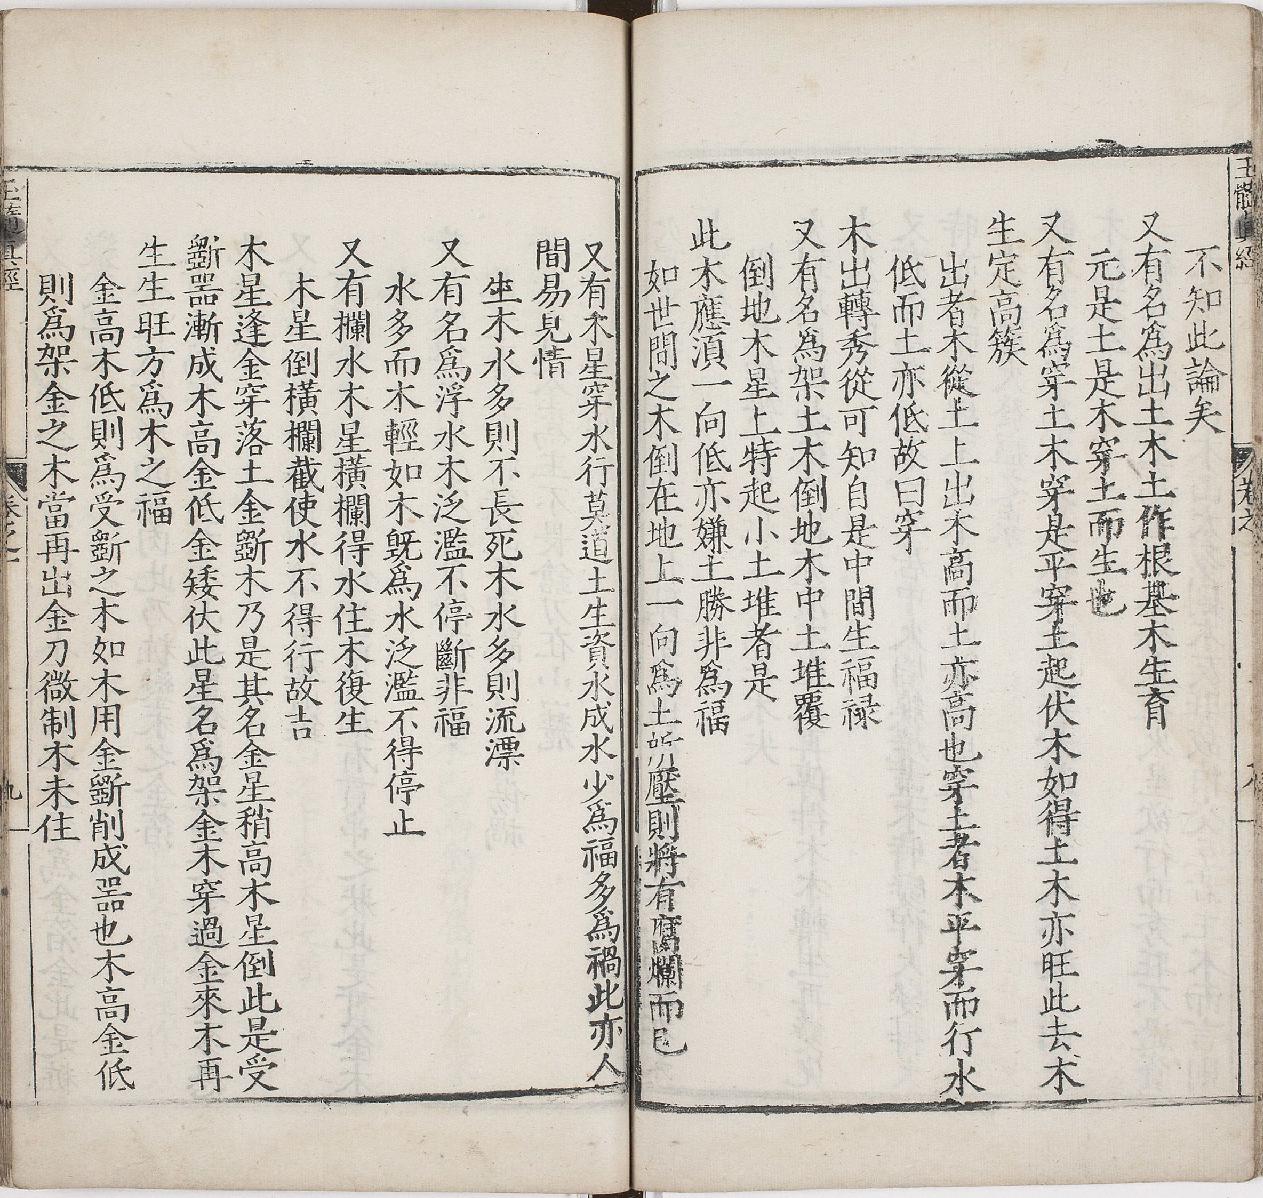 玉髓真經
卷之
八
不知此論矣
又有名爲出土木土作根基木生育
元是土是木穿土而生也
又有名爲穿土木穿是平穿土起伏木如得土木亦旺此去木
生定高簇
出者木從土上出木高而土亦高也穿土者木平穿而行水
低而土亦低故曰穿
木出轉秀從可知自是中間生福祿
又有名爲架土木倒地木中土堆覆
倒地木星上特起小土堆者是
此木應須一向低亦嫌土勝非爲福
如世間之木倒在地上一向爲土所壓則將有腐爛而已
又有木星穿水行莫道土生資水成水少爲福多爲禍此亦人
間易見情
坐木水多則不長死木水多則流漂
又有名爲浮水木泛濫不停斷非福
水多而木輕如木旣爲水泛濫不得停止
又有攔水木星橫攔得水住木復生
木星倒橫攔截使水不得行故吉
木星逢金穿落土金斵木乃是其名金星稍高木星倒此是受
斵噐漸成木高金低金矮伏此星名爲架金木穿過金來木再
生生旺方爲木之福
金高木低則爲受斵之木如木用金斵削成噐也木高金低
則爲架金之木當再出金刀微制木未住
玉髓真經
卷之
九